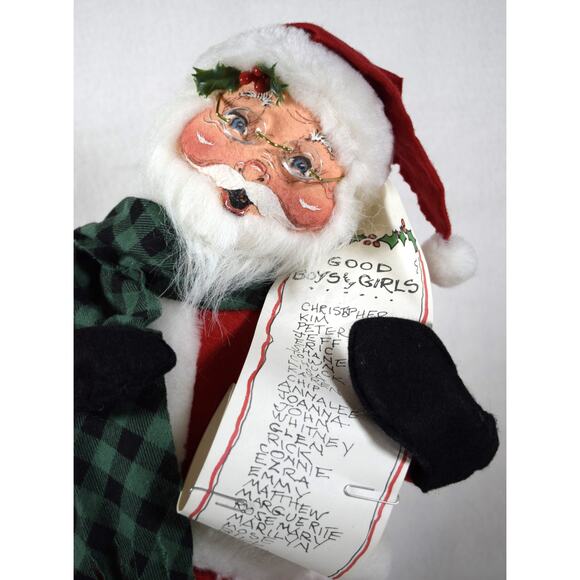 GOOD
BOYS & GIRLS
CHRISTOPHER
KIM
PETER
JEFF
ERIC
CHIP
ANNALEE
JOANNA
JOHN
WHITNEY
GLENN
RICK
CONNIE
EZRA
EMMY
MATTHEW
MARGUERITE
ROSEMARY
MARILYN
ROSE